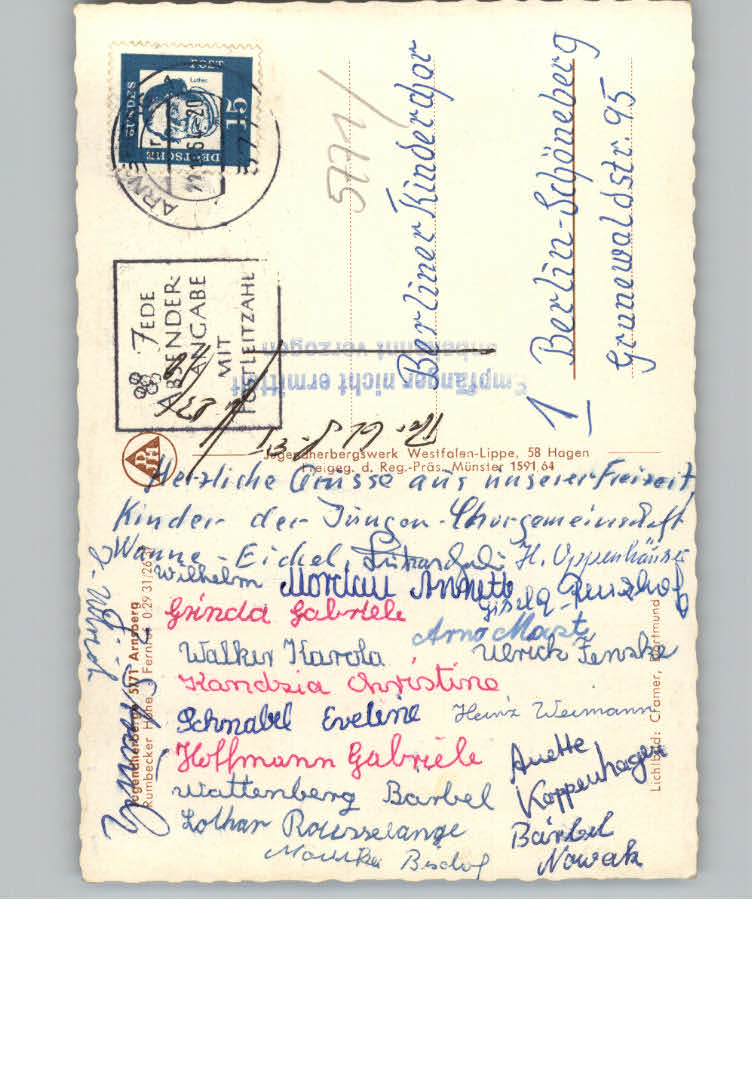 DEUTSCHE
BUNDES
POST
15
Luther
ARN
577
JEDE
ABSENDER-
ANGABE
MIT
POSTLEITZAHL
5771
Berliner Kinderchor
1 Berlin-Schöneberg
Grunewaldstr. 95
Empfänger nicht ermittelt
unbekannt verzogen
DJH
Jugendherbergswerk Westfalen-Lippe, 58 Hagen
Freigeg. d. Reg.-Präs. Münster 1591/64
Herzliche Grüsse aus unserer Freizeit,
Kinder der Jungen-Chorgemeinschaft
Wanne-Eickel, H. Oppenhäuser
Wilhelm Annette Gisela
Grinda Gabriele
Arno Mast
Walker Karola Ulrich Fenske
Kandzia Christine
Schnabel Evelene Heinz Weimann
Hoffmann Gabriele Anette
Koppenhagen
Wattenberg Bärbel
Lothar Rousselange Bärbel
Nowak
Monika Bischof
Jugendherberge 5771 Arnsberg
Rumbecker Höhe Fernruf 0 29 31/26
Lichtbild: Cramer, Dortmund